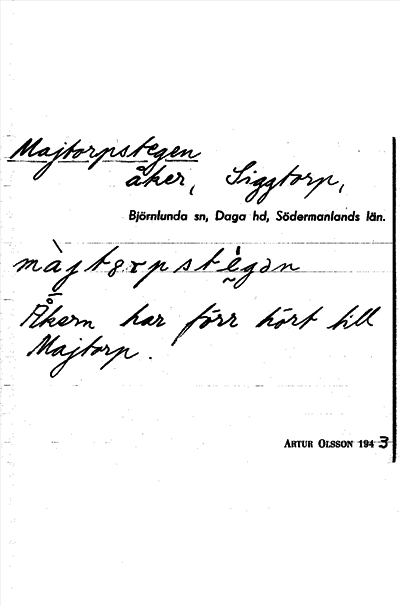 Majtorpstegen
åker, Siggtorp,
Björnlunda sn, Daga hd, Södermanlands län.
màjtɷrpstègən
Åkern har förr hört till
Majtorp.
ARTUR OLSSON 1943